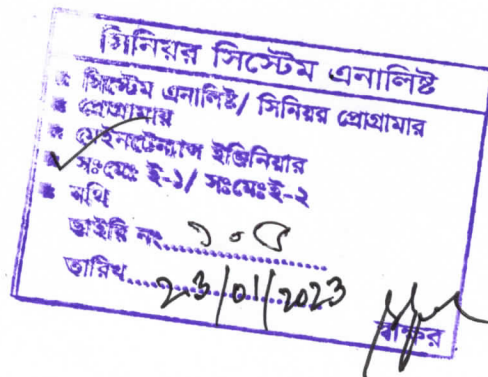 সিনিয়র সিস্টেম এনালিষ্ট
সিস্টেম এনালিষ্ট/ সিনিয়র প্রোগ্রামার
প্রোগ্রামার
মেইনটেন্যান্স ইঞ্জিনিয়ার
সঃমেঃ ই-১/ সঃমেঃই-২
নথি
ডাইরি নং..... ১০৫
তারিখ..... 23/01/2023
স্বাক্ষর